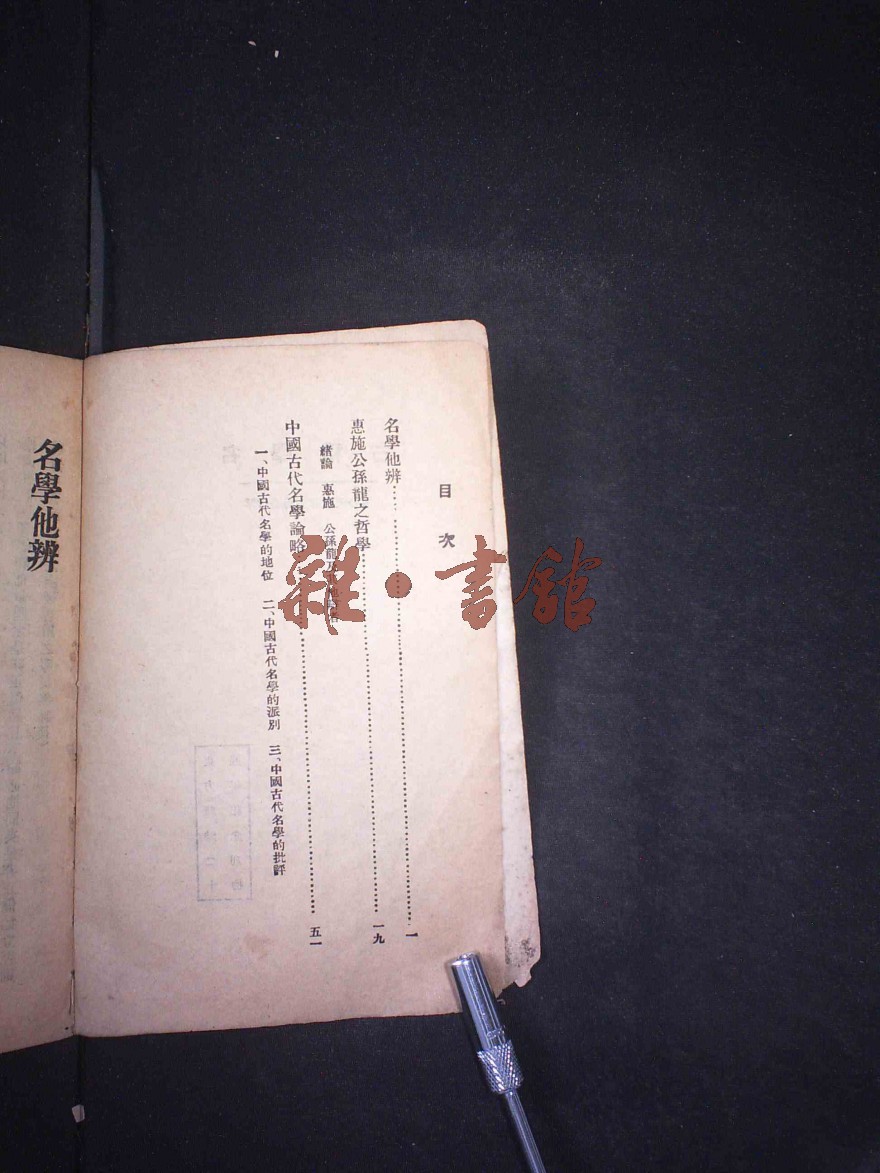 目次
名學他辨……一
惠施公孫龍之哲學……一九
緒論　惠施　公孫龍
中國古代名學論略……五一
一、中國古代名學的地位　二、中國古代名學的派別　三、中國古代名學的批評
名學他辨
雜·書館